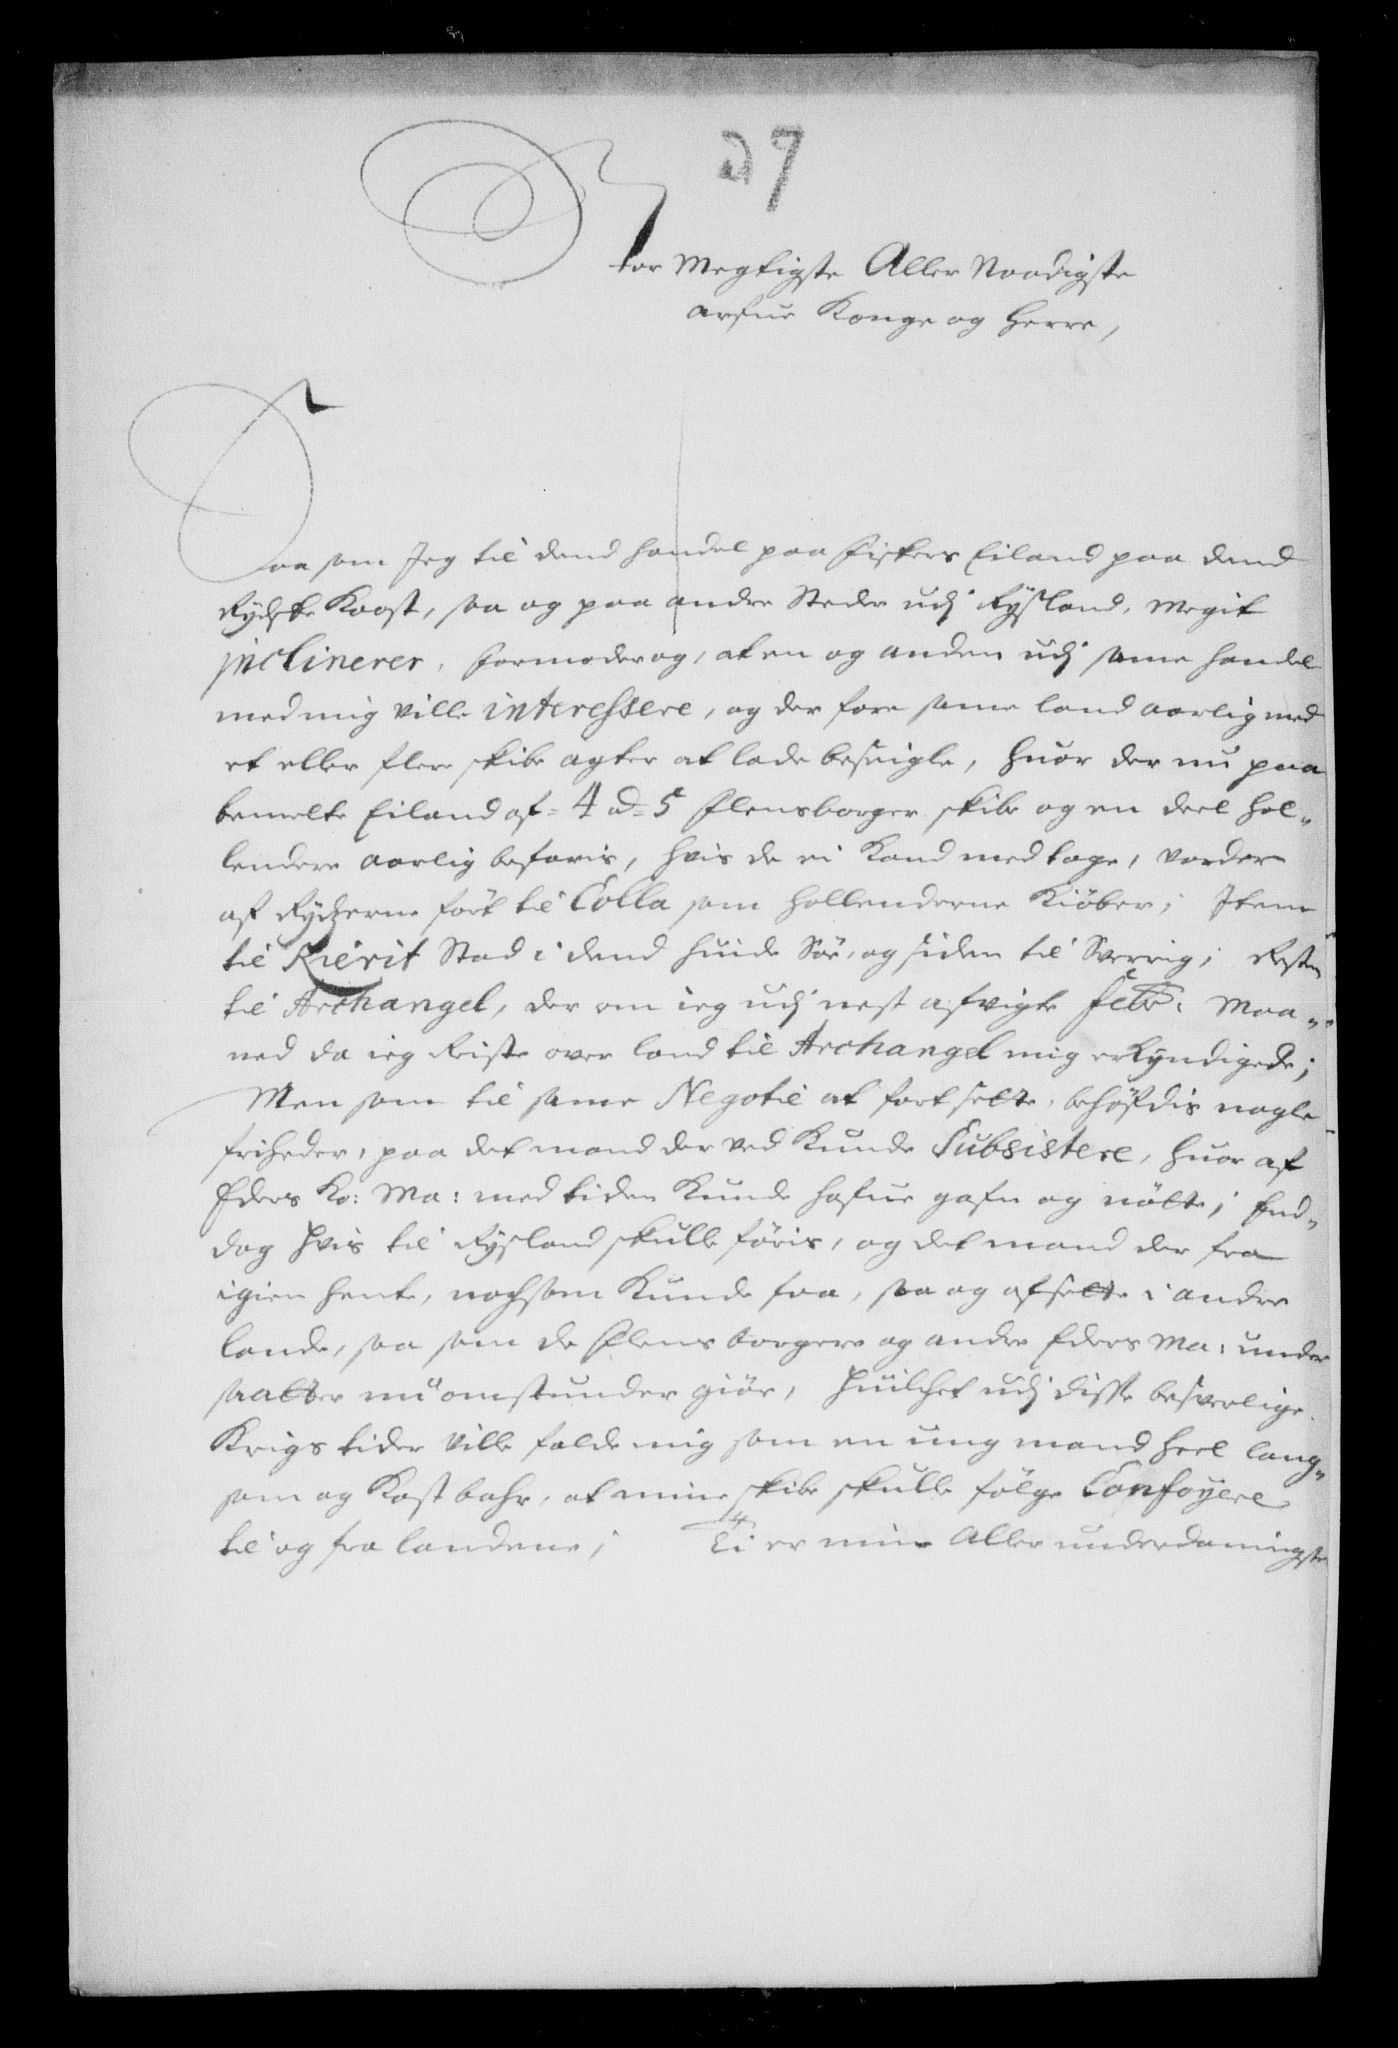 27
Stor Megtigste Aller Naadigste
arfue Konge og Herre,
Saa som Jeg til dend handel paa Fiskers Eiland paa dend
Rydske Koost, saa og paa andre Steder udj Rysland, Megit
inclinerer, formoder og, at en og anden udj same handel
med mig ville interessere, og der fore same land aarlig med
et eller flere skibe agter at lade beseigle, huor der nu paa
bemelte Eiland af = 4 a 5 Flensborger skibe og en deel hol„
lendere aarlig befaris, hvis de ei kand medtage, vorder
af Rydzerne fört til Colla som Hollenderne Kiöber; Item
til Kierit Stad i dend huide Söe, og siden til Sverrig; Resten
til Archangel, der om ieg udj nest afvigte Febr: Maa„
ned da ieg Reiste over land til Archangel mig erkyndigede;
Men som til same Negotie at fortsette, behöfdis nogle
friheder, paa det mand der ved kunde Subsistere, huor af
Eders Ko: Ma: med tiden kunde hafue gafn og nötte; End„
dog hvis til Rysland skulle föris, og det mand der fra
igien hente, nochsom kunde faa, saa og afsette i andre
lande, saa som de Flensborgere og andre Eders Ma: under
saatter nu omstunder giör, huilchet udj disse besverlige
Krigs tider ville falde mig som en ung mand heel lang„
som og kostbahr, at mine skibe skulle fölge Confoyere
til og fra landene; Ti er min Aller underdanigste